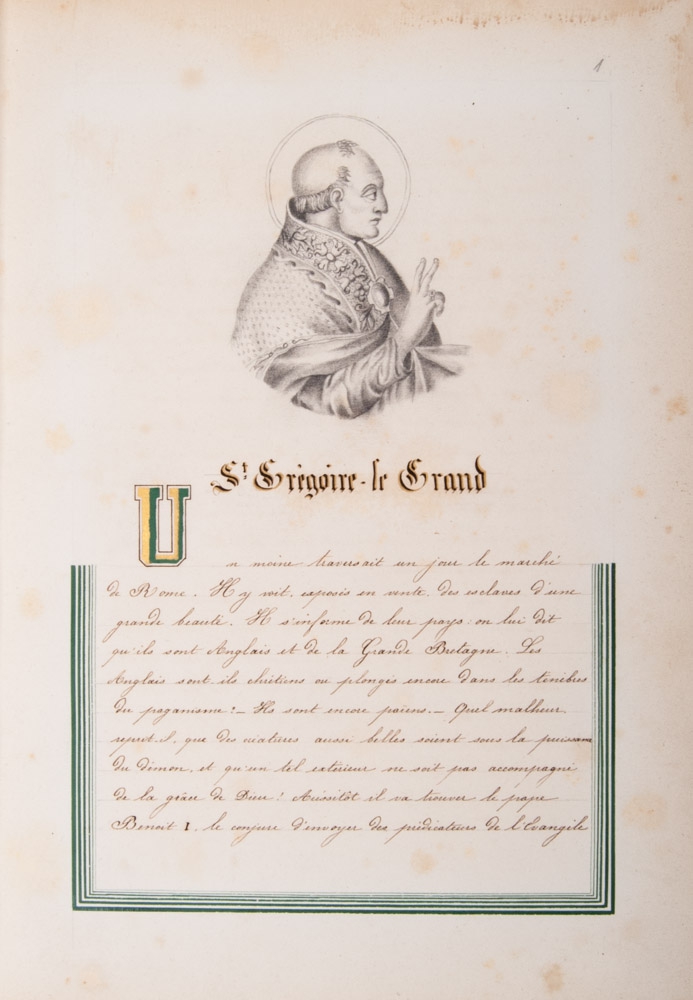 1
St Grégoire-le Grand
Un moine traversait un jour le marché
de Rome. Il y voit, exposés en vente, des esclaves d'une
grande beauté. Il s'informe de leur pays: on lui dit
qu'ils sont Anglais et de la Grande Bretagne. Les
Anglais sont-ils chrétiens ou plongés encore dans les ténèbres
du paganisme?_ Ils sont encore païens._ Quel malheur,
reprit-il, que des créatures aussi belles soient sous la puissan
du démon, et qu'un tel extérieur ne soit pas accompagné
de la grâce de Dieu! Aussitôt il va trouver le pape
Benoit I, le conjure d'envoyer des prédicateurs de l'Evangile